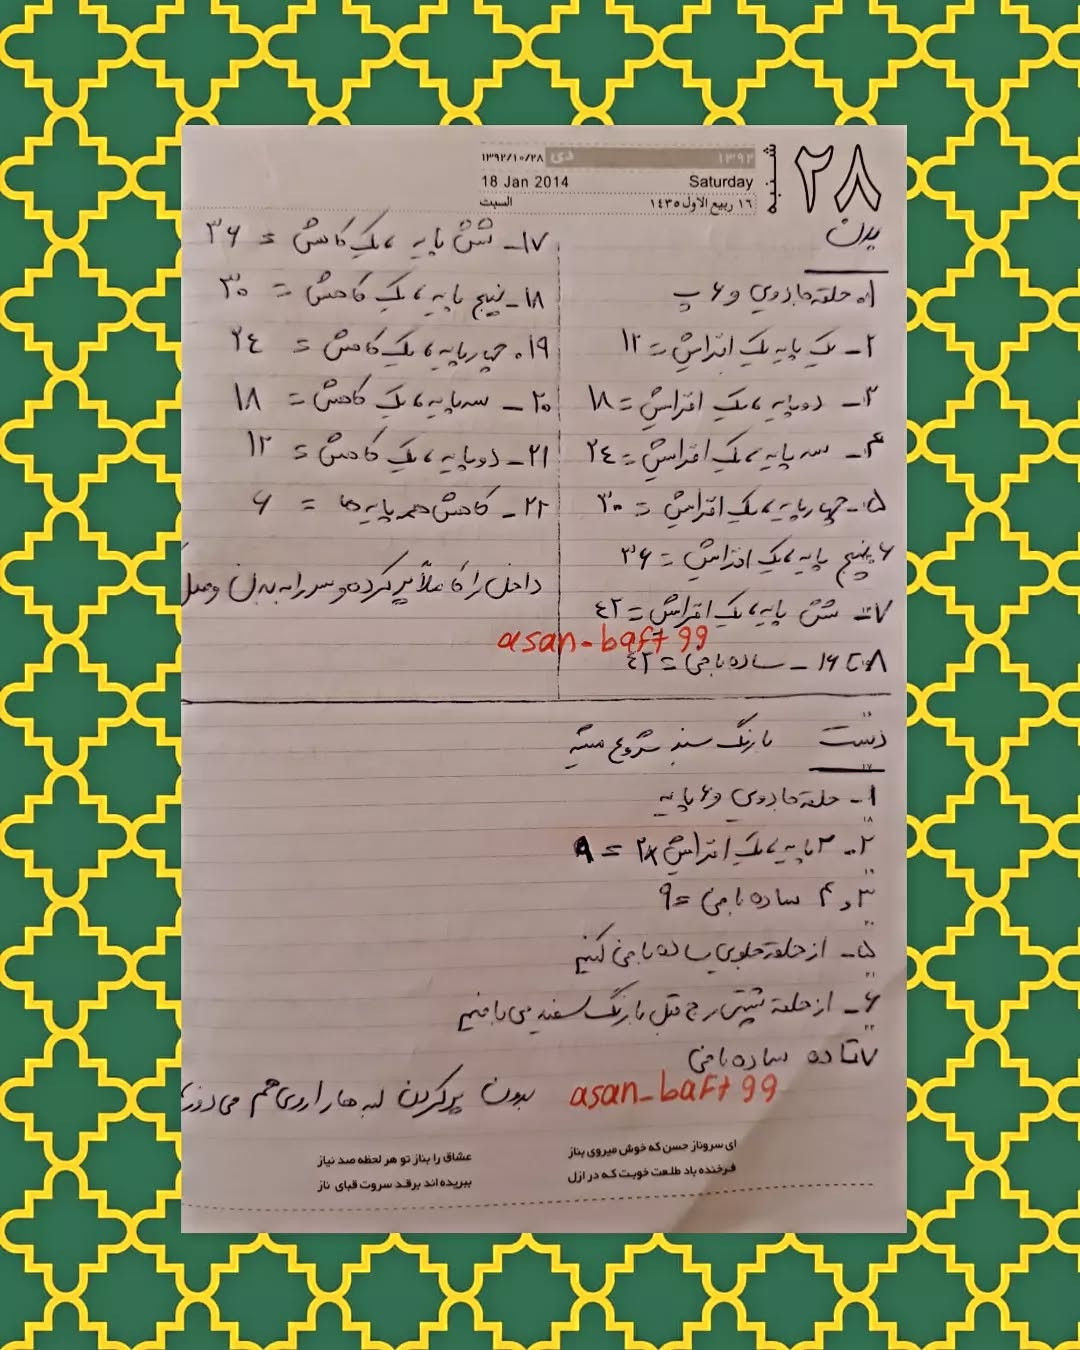 ۲۸
شنبه
۱۳۹۲ دی ۱۳۹۲/۱۰/۲۸
Saturday 18 Jan 2014
۱۶ ربیع الاول ۱۴۳۵ السبت
بدن
۱. حلقه جادویی و ۶ پ
۲- یک پایه یک افزایش = ۱۲
۳- دوپایه، یک افزایش = ۱۸
۴- سه پایه، یک افزایش = ۲۴
۵- چهارپایه، یک افزایش = ۳۰
۶- پنج پایه، یک افزایش = ۳۶
۷- شش پایه، یک افزایش = ۴۲
۸ تا ۱۶ - ساده بافی = ۴۲
۱۷- شش پایه، یک کاهش = ۳۶
۱۸- پنج پایه، یک کاهش = ۳۰
۱۹. چهارپایه، یک کاهش = ۲۴
۲۰- سه پایه، یک کاهش = ۱۸
۲۱- دوپایه، یک کاهش = ۱۲
۲۲- کاهش همه پایه ها = ۶
داخل را کاملاً پر کرده و سر را به بدن وصل
asan-baft99
دست با رنگ سبز شروع میشه
۱- حلقه جادویی و ۶ پایه
۲. ۲ پایه، یک افزایش = ۹
۳ و ۴ ساده بافی = ۹
۵- از حلقه جلویی ساده بافی کنیم
۶- از حلقه پشتی رج قبل با رنگ سفید می بافیم
۷ تا ده ساده بافی
بدون پر کردن لبه ها را روی هم می دوزیم
asan-baft99
ای سروناز حسن که خوش میروی بناز عشاق را بناز تو هر لحظه صد نیاز
فرخنده باد طلعت خوبت که در ازل ببریده اند برقد سروت قبای ناز